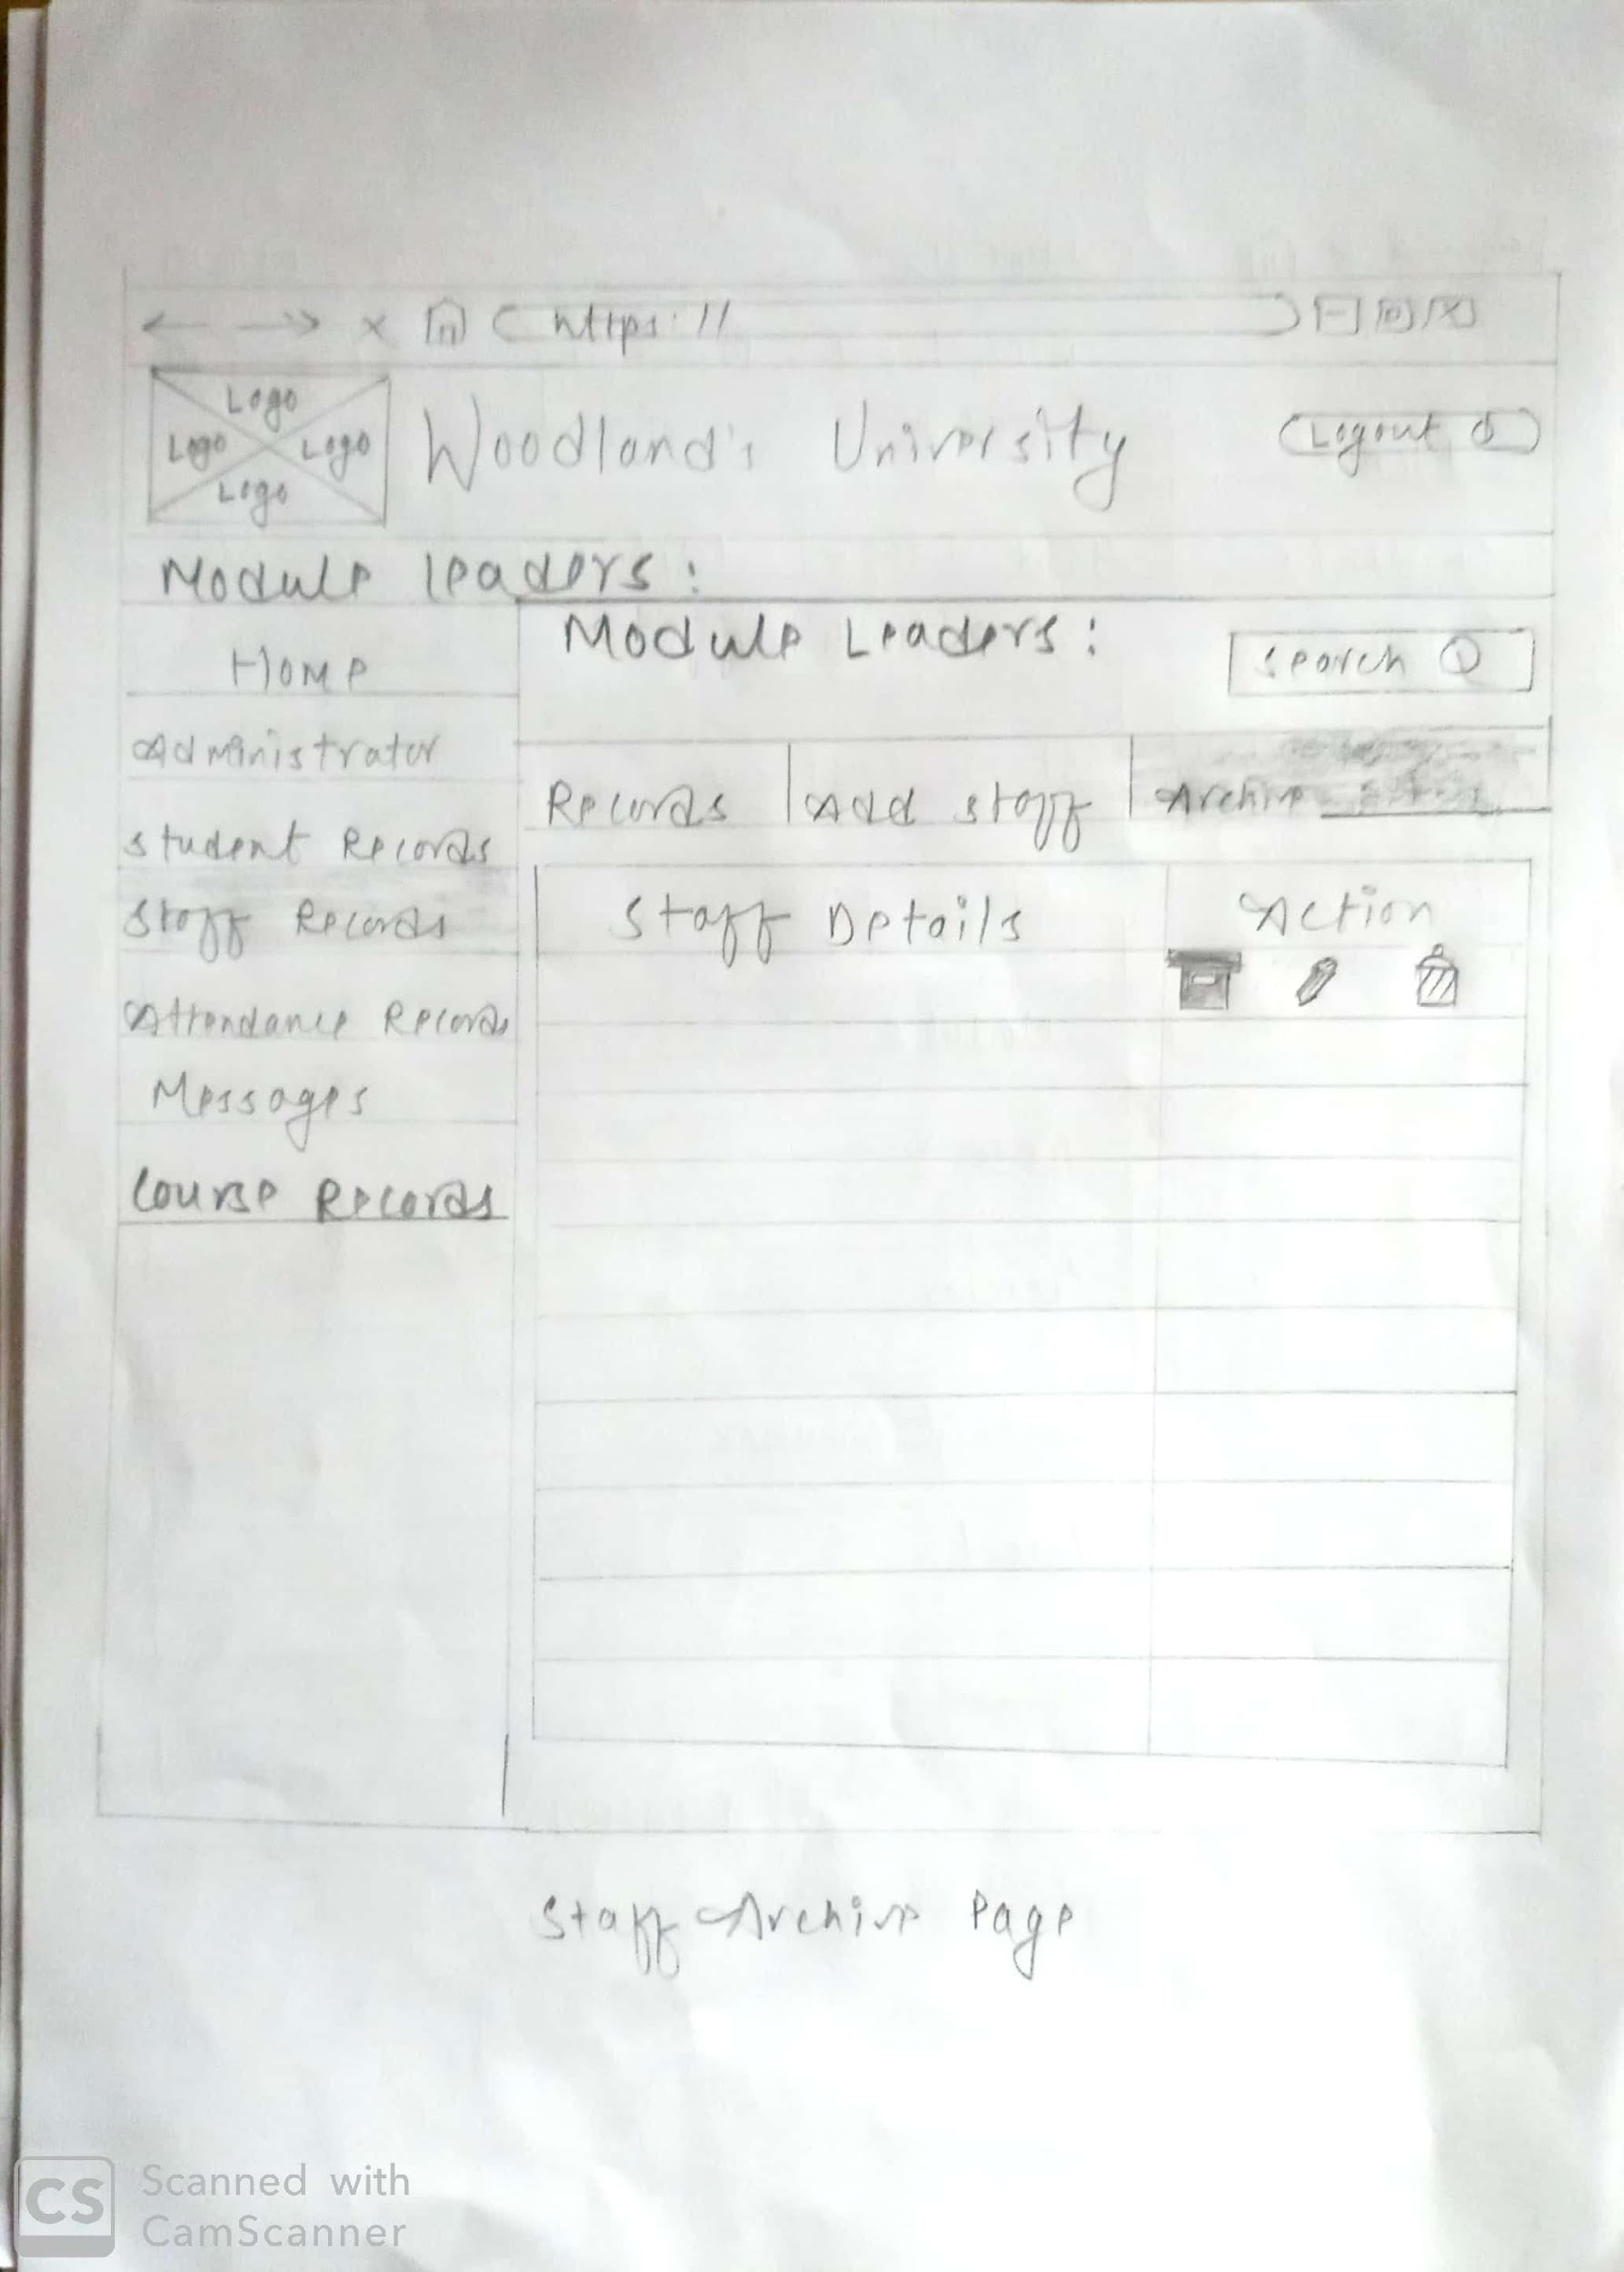 https://
Logo
Logo Logo
Logo
Woodland's University
Logout
Module leaders:
Module Leaders:
Search
Home
Administrator
Student Records
Staff Records
Attendance Records
Messages
Course Records
Records Add Staff Archive
Staff Details Action
Staff Archive Page
CS Scanned with
CamScanner